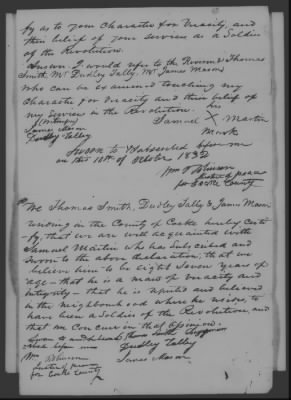 fy as to your Character for Veracity, and
their belief of your services as a Soldier
of the Revolution.
Answer. I would refer to the Reverend Thomas
Smith, Mr Dudley Tally, Mr James Mason
who can be examined touching my
Character for Veracity and their belief of
my Services in the Revolution. his
Samuel X Martin
Mark
James Mason
Dudley Talley
Sworn to & subscribed before me
on this 10th of October 1832
Wm
Justice of peace
for Cocke County
We Thomas Smith, Dudley Talley & James Mason
residing in the County of Cocke hereby Certi-
fy, that we are well acquainted with
Samuel Martin who has Subscribed and
Sworn to the above declaration, that we
believe him to be eighty Seven Years of
age - that he is a man of Veracity and
integrity - that he is reputed and believed
in the neighbourhood where he resides, to
have been a Soldier of the Revolution, and
that we Concur in that Opinion.
Sworn to and subscribed Thomas Smith
before me Dudley Talley
Wm
Justice of peace James Mason
for Cocke County